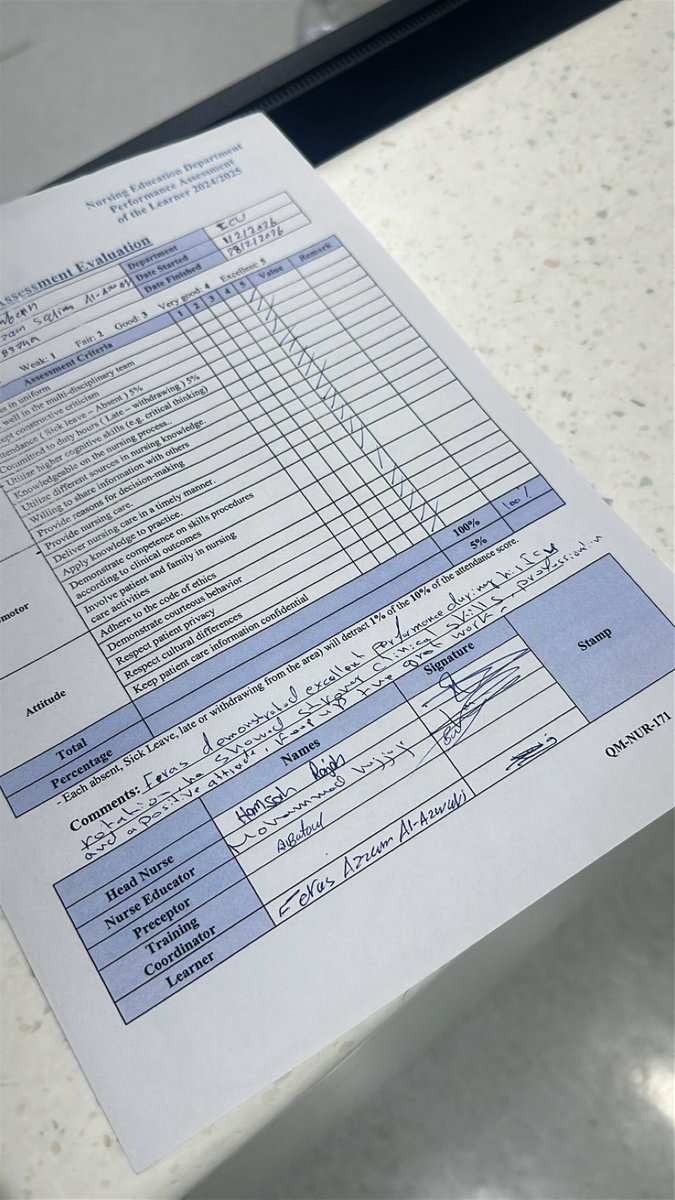 Nursing Education Department
Performance Assessment
of the Learner 2024/2025
Assessment Evaluation
Department ICU
Date Started 1/2/2026
Date Finished 28/2/2026
Salim Al-Azwari
Weak: 1 Fair: 2 Good: 3 Very good: 4 Excellent: 5
Assessment Criteria 1 2 3 4 5 Value Remark
in uniform
well in the multi-disciplinary team
constructive criticism
(Sick leave – Absent) 5%
Committed to duty hours (Late – withdrawing) 5%
Utilize higher cognitive skills (e.g. critical thinking)
Knowledgeable on the nursing process.
Utilize different sources in nursing knowledge.
Willing to share information with others
Provide reasons for decision-making
Provide nursing care.
Deliver nursing care in a timely manner.
Apply knowledge to practice.
Demonstrate competence on skills procedures
according to clinical outcomes
Involve patient and family in nursing
care activities
Adhere to the code of ethics
Demonstrate courteous behavior
Respect patient privacy
Respect cultural differences
Keep patient care information confidential
Attitude
Total 100% 100%
Percentage 5%
- Each absent, Sick Leave, late or withdrawing from the area) will detract 1% of the 10% of the attendance score.
Comments: Feras demonstrated excellent performance during his ICU
rotation, he showed stronger clinical skills, professionalism
and a positive attitude, keep up the great work.
Names Signature Stamp
Head Nurse
Nurse Educator Mohammad
Preceptor AlBatoul
Training
Coordinator
Learner Feras Azzam Al-Azwari
QM-NUR-171